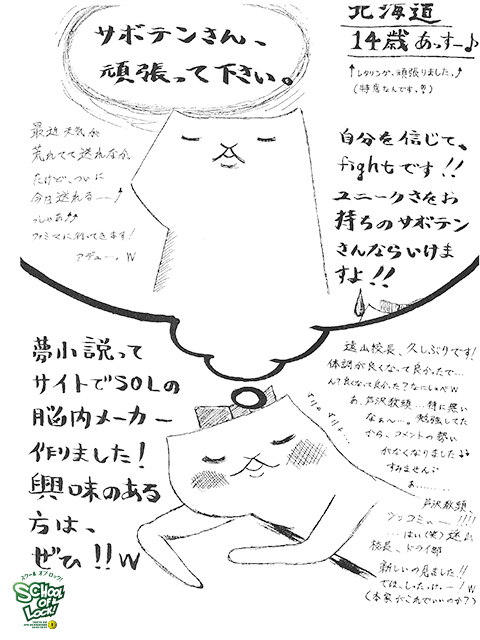 サボテンさん、
頑張って下さい。
北海道
14歳 あっすー♪
↑レタリングが、頑張りました。↑
(特意なんです。!!)
最近天気が
荒れてて送れなか
たけど、ついに
今日送れるーー↑
っしゃあ↑↑
ファミマに行ってきます!
アデュー。w
自分を信じて、
fightです!!
ユニークさをお
持ちのサボテン
さんならいけま
すよ!!
夢小説って
サイトでSOLの
脳内メーカー
作りました!
興味のある
方は、
ぜひ!!w
遠山校長、久しぶりです!
体調が良くなって良かったで…
ん?良くなって良かった?なにしゃべw
あ、芦沢教頭…特に悪い
なぁ〜…。勉強してた
から、コメントの勢い
がなくなりました
すみません
あ………
芦沢教頭、
ツッコミぃー!!!!
…はい(笑)遠山
校長、ドライ部
新しいの見ました!!
では、したっけ、ー!w
(本家がこれでいいのか?)
スクール オブ ロック!
SCHOOL
OF
LOCK!